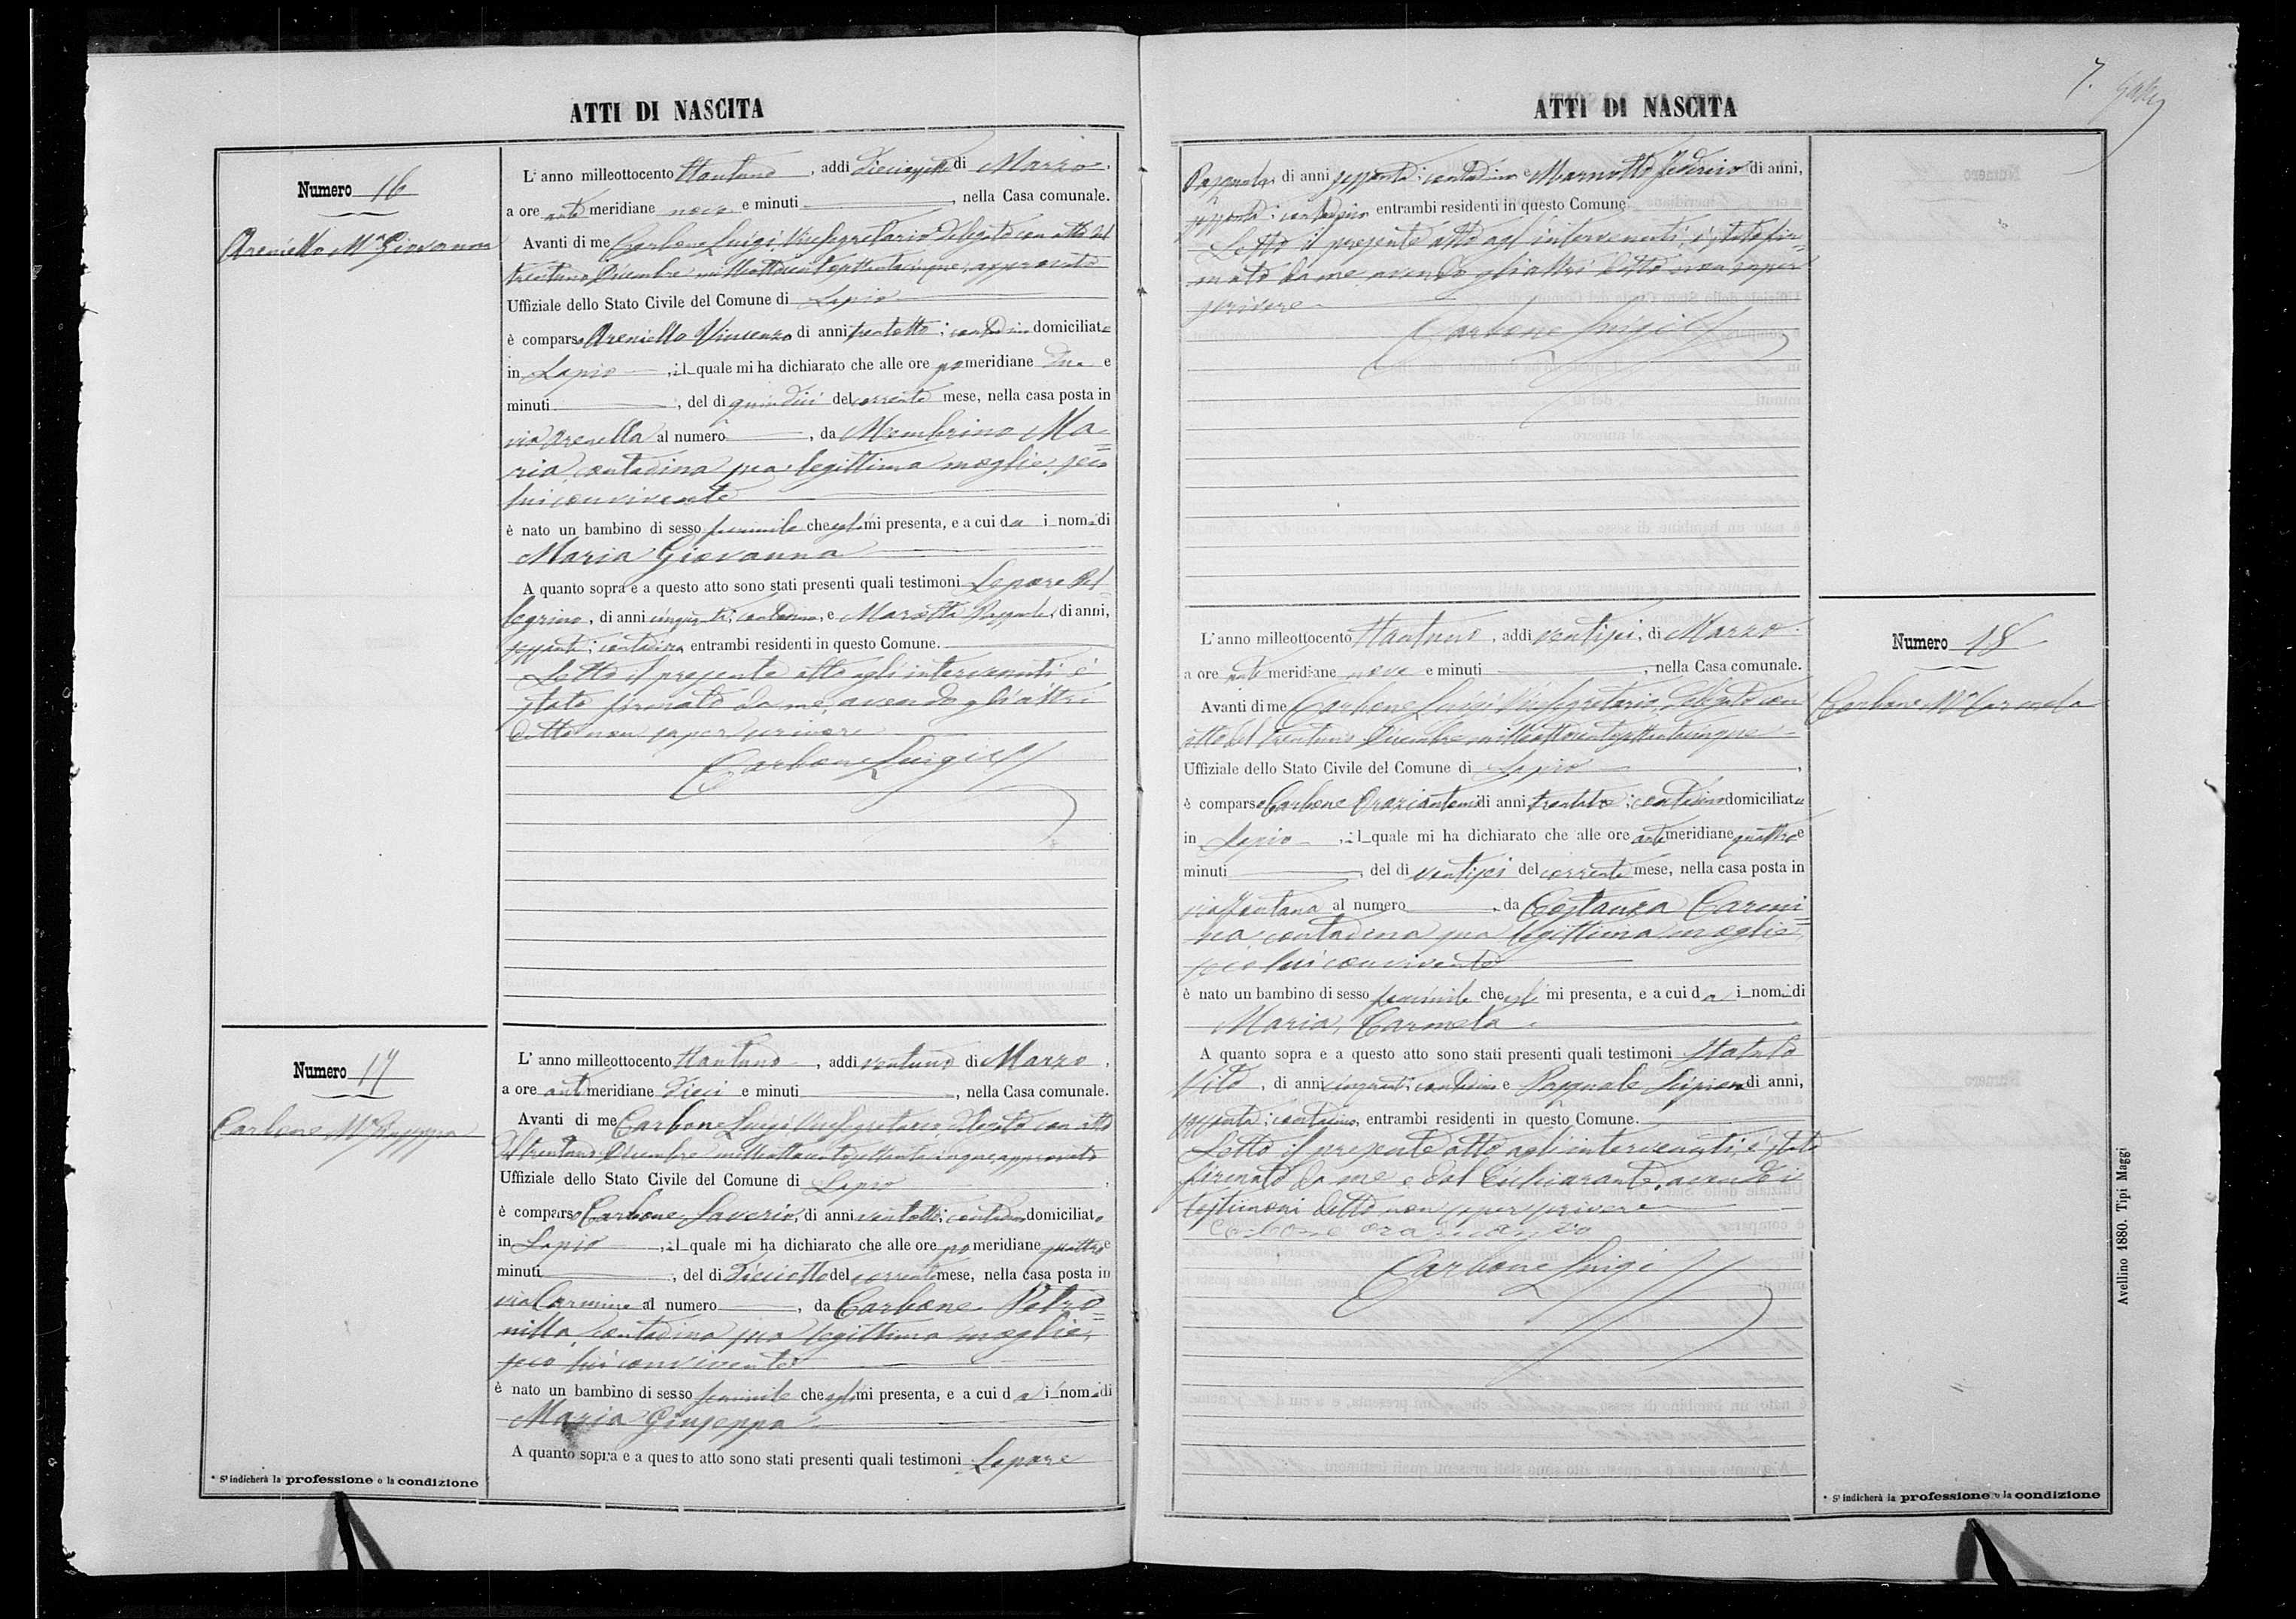 ATTI DI NASCITA
Numero 16
Areniello Ma Giovanna
L'anno milleottocento ttantuno, addi diciassette di Marzo,
a ore ante meridiane nove e minuti, nella Casa comunale.
Avanti di me Carbone Luigi Vicesegretario Delegato con atto del
trentuno Dicembre milleottocentosettantacinque, approvato
Uffiziale dello Stato Civile del Comune di Lapio
è comparso Areniello Vincenzo di anni trentotto; contadino domiciliato
in Lapio, il quale mi ha dichiarato che alle ore pomeridiane due e
minuti, del dì quindici del corrente mese, nella casa posta in
via Arenella al numero, da Mombrino Ma=
ria, contadina sua legittima moglie, seco
lui convivente
è nato un bambino di sesso feminile che egli mi presenta, e a cui da i nomi di
Maria Giovanna
A quanto sopra e a questo atto sono stati presenti quali testimoni Lepore Pel=
legrino, di anni cinquanta; contadino, e Marotta Pasquale, di anni,
sessanta; contadino, entrambi residenti in questo Comune.
Letto il presente atto agli intervenuti è
stato firmato da me, avendo gli altri
detto non saper scrivere
Carbone Luigi
Numero 17
Carbone Ma Giuseppa
L'anno milleottocento ttantuno, addi ventuno di Marzo,
a ore ant meridiane dieci e minuti, nella Casa comunale.
Avanti di me Carbone Luigi Vicesegretario, Delegato con atto
del trentuno Dicembre milleottocentosettantacinque, approvato
Uffiziale dello Stato Civile del Comune di Lapio
è comparso Carbone Saverio, di anni ventotto; contadino domiciliato
in Lapio, il quale mi ha dichiarato che alle ore pomeridiane quattro e
minuti, del dì dieciotto del corrente mese, nella casa posta in
via Carmine al numero, da Carbone Petro=
nilla, contadina sua legittima moglie,
seco lui convivente
è nato un bambino di sesso feminile che egli mi presenta, e a cui da i nomi di
Maria Giuseppa
A quanto sopra e a questo atto sono stati presenti quali testimoni Lepore
* S'indicherà la professione o la condizione
ATTI DI NASCITA
7.
Pasquale, di anni sessanta; contadino e Marnotto Federico di anni,
sessanta; contadino, entrambi residenti in questo Comune
Letto il presente atto agl'intervenuti, è stato fir=
mato da me, avendo gli altri detto non saper
scrivere
Carbone Luigi
Numero 18
Carbone Ma Carmela
L'anno milleottocento ttantuno, addi ventisei, di Marzo
a ore ante meridiane nove e minuti, nella Casa comunale.
Avanti di me Carbone Luigi Vicesegretario, Delegato con
atto del trentuno Dicembre milleottocentosettantacinque
Uffiziale dello Stato Civile del Comune di Lapio,
è comparso Carbone Oraziantonio di anni trentatre; contadino domiciliato
in Lapio, il quale mi ha dichiarato che alle ore antemeridiane quattro e
minuti, del dì ventisei del corrente mese, nella casa posta in
via Fontana al numero, da Costanza Carmi=
na, contadina sua legittima moglie,
seco lui convivente
è nato un bambino di sesso feminile che egli mi presenta, e a cui da i nomi di
Maria, Carmela
A quanto sopra e a questo atto sono stati presenti quali testimoni
Vito, di anni cinquanta; contadino e Pasquale Scipione di anni,
sessanta; contadino, entrambi residenti in questo Comune.
Letto il presente atto agli intervenuti, è stato
firmato da me e dal Dichiarante, avendo i
testimoni detto non saper scrivere
Carbone
Carbone Luigi
* S'indicherà la professione o la condizione
Avellino 1880. Tipi Maggi